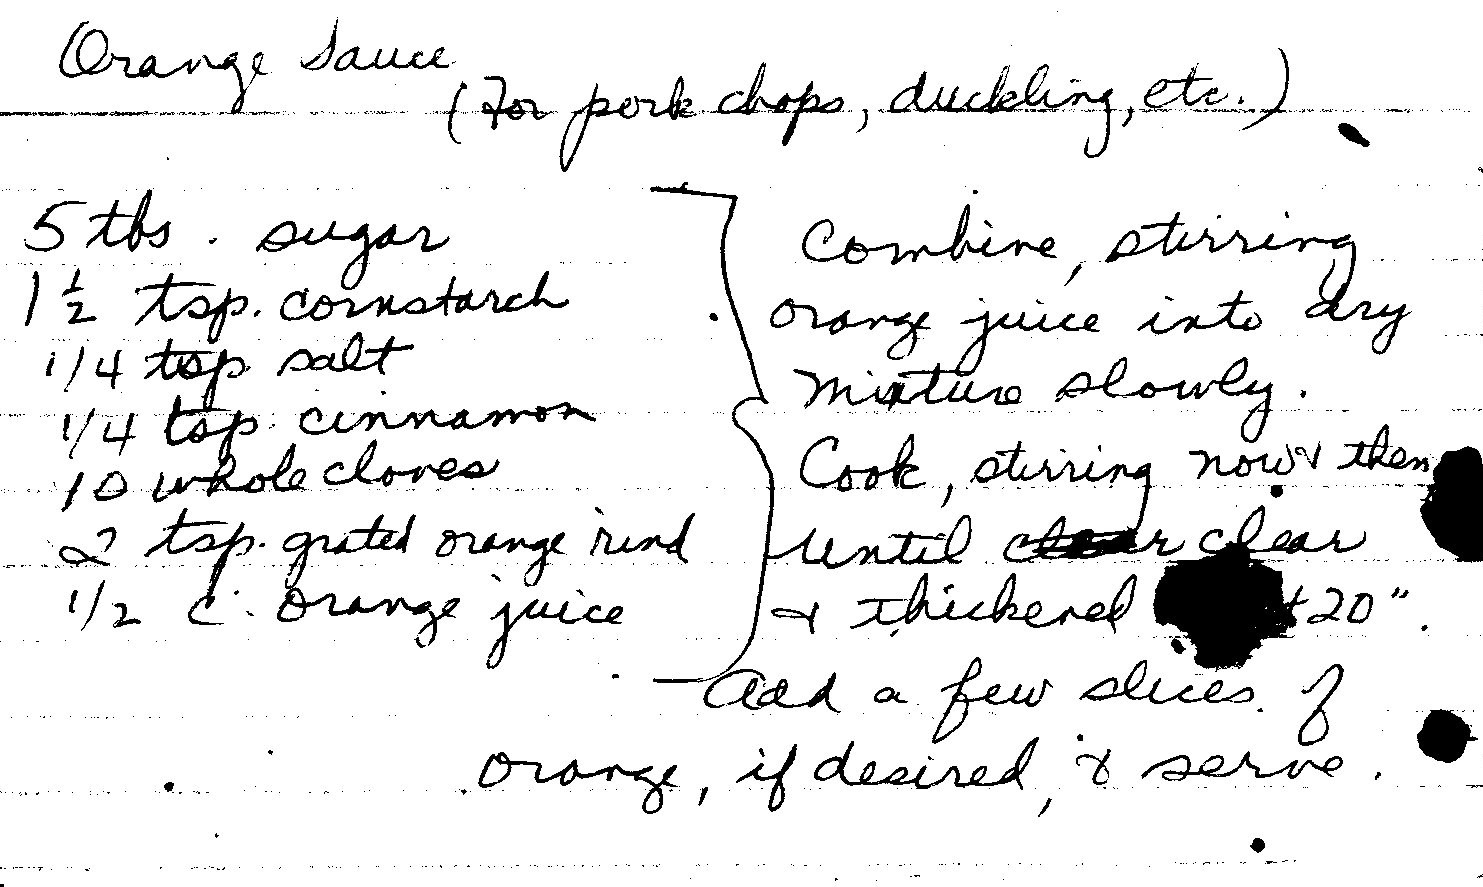 Orange Sauce
(For pork chops, duckling, etc.)
5 tbs. sugar
1 1/2 tsp. cornstarch
1/4 tsp salt
1/4 tsp. cinnamon
10 whole cloves
2 tsp. grated orange rind
1/2 c. orange juice
Combine, stirring
orange juice into dry
mixture slowly.
Cook, stirring now & then
until clear
& thickened 20".
Add a few slices of
orange, if desired, & serve.